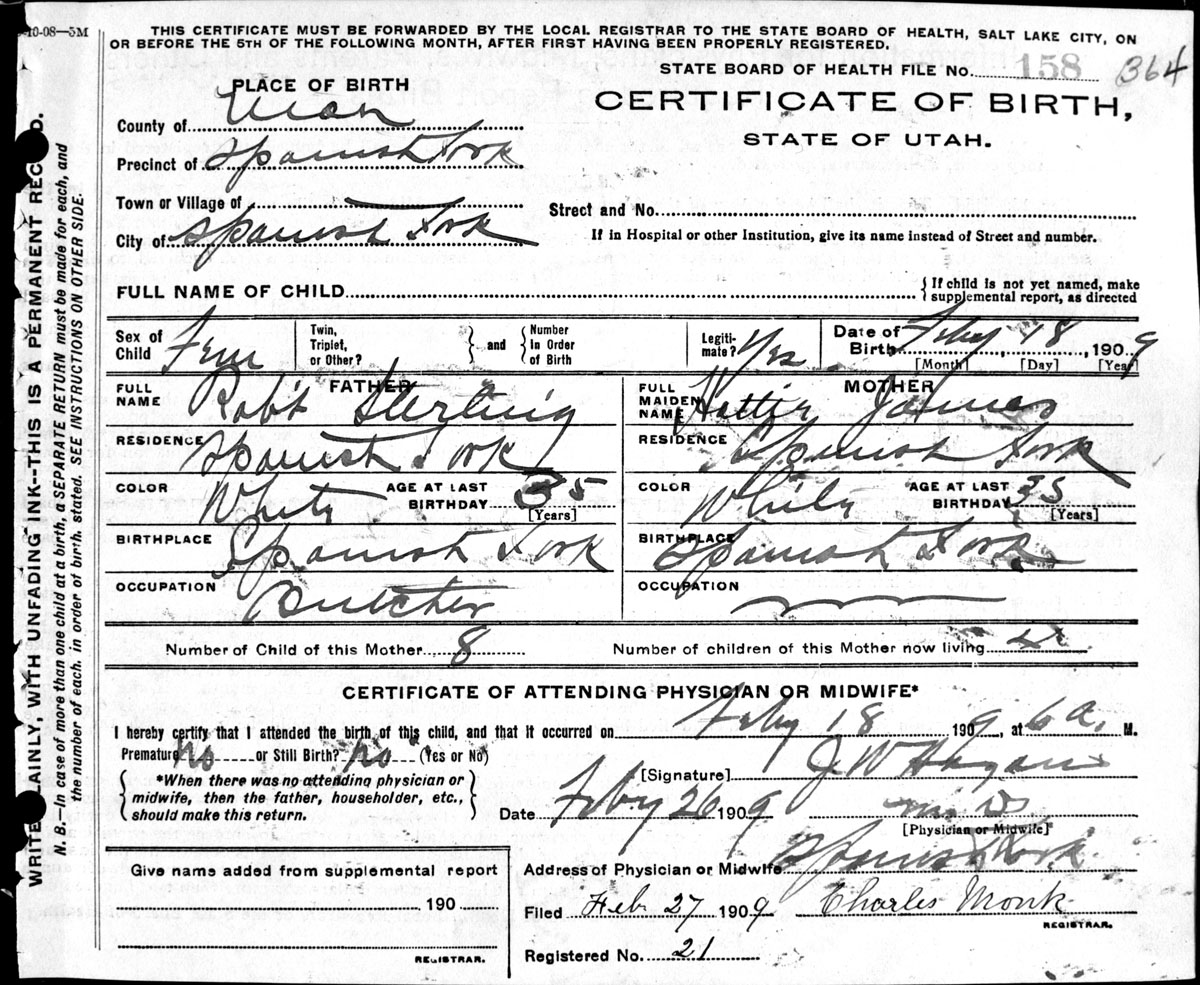 10-08—5M
THIS CERTIFICATE MUST BE FORWARDED BY THE LOCAL REGISTRAR TO THE STATE BOARD OF HEALTH, SALT LAKE CITY, ON
OR BEFORE THE 5TH OF THE FOLLOWING MONTH, AFTER FIRST HAVING BEEN PROPERLY REGISTERED.
STATE BOARD OF HEALTH FILE No. 158 364
PLACE OF BIRTH
CERTIFICATE OF BIRTH,
STATE OF UTAH.
County of Utah
Precinct of Spanish Fork
Town or Village of
Street and No.
City of Spanish Fork
If in Hospital or other Institution, give its name instead of Street and number.
FULL NAME OF CHILD
{ If child is not yet named, make
supplemental report, as directed
Sex of Child Fem
Twin, Triplet, or Other? } and { Number In Order of Birth
Legiti-mate? Yes
Date of Birth Feby 18, 1909
[Month] [Day] [Year]
FATHER
FULL NAME Robt Sterling
MOTHER
FULL MAIDEN NAME Hattie James
RESIDENCE Spanish Fork
RESIDENCE Spanish Fork
COLOR White AGE AT LAST BIRTHDAY 35 [Years]
COLOR White AGE AT LAST BIRTHDAY 35 [Years]
BIRTHPLACE Spanish Fork
BIRTHPLACE Spanish Fork
OCCUPATION Butcher
OCCUPATION
Number of Child of this Mother 8 Number of children of this Mother now living
CERTIFICATE OF ATTENDING PHYSICIAN OR MIDWIFE*
I hereby certify that I attended the birth of this child, and that it occurred on Feby 18 1909, at 6 a. M.
Premature no or Still Birth? no (Yes or No)
{ *When there was no attending physician or
midwife, then the father, householder, etc.,
should make this return. }
[Signature] J W Hagan
Date Feby 26 1909 M D
[Physician or Midwife]
Address of Physician or Midwife Spanish Fork
Filed Feb 27 1909 Charles Monk
REGISTRAR.
Registered No. 21
Give name added from supplemental report
190
REGISTRAR.
WRITE PLAINLY, WITH UNFADING INK--THIS IS A PERMANENT RECORD.
N. B.—In case of more than one child at a birth, a SEPARATE RETURN must be made for each, and
the number of each, in order of birth, stated. SEE INSTRUCTIONS ON OTHER SIDE.